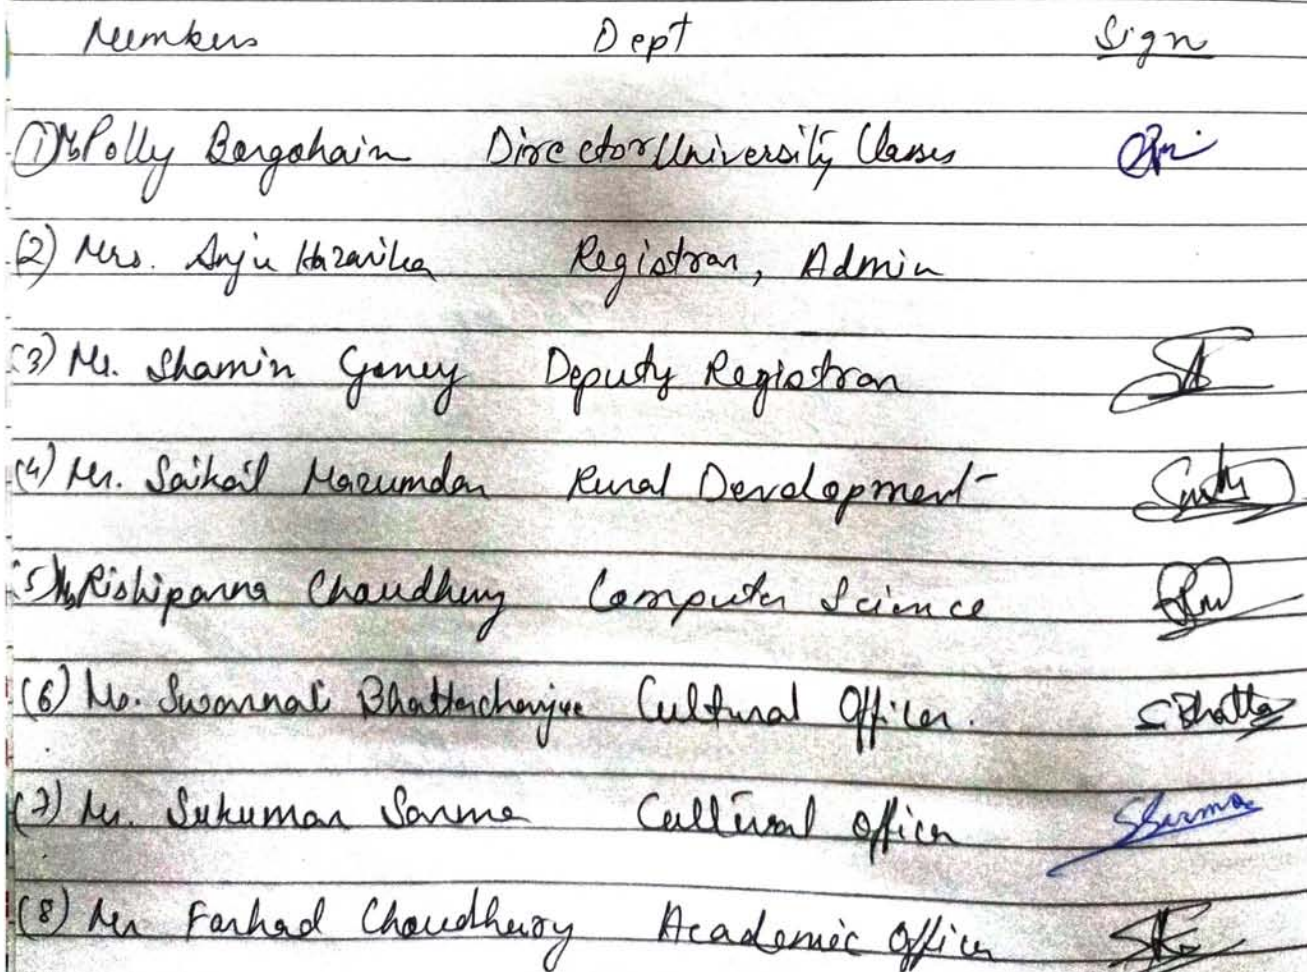 Members Dept Sign
(1) Ms Polly Borgohain Director University Classes
(2) Mrs. Anju Hazarika Registrar, Admin
(3) Mr. Shamin Goney Deputy Registrar
(4) Mr. Saikat Mazumdar Rural Development
(5) Ms Rishiparna Choudhury Computer Science
(6) Ms. Swarnali Bhattacharjee Cultural Officer. S Bhatta
(7) Mr. Sukumar Sarma Cultural Officer SSarma
(8) Mr Farhad Choudhury Academic Officer